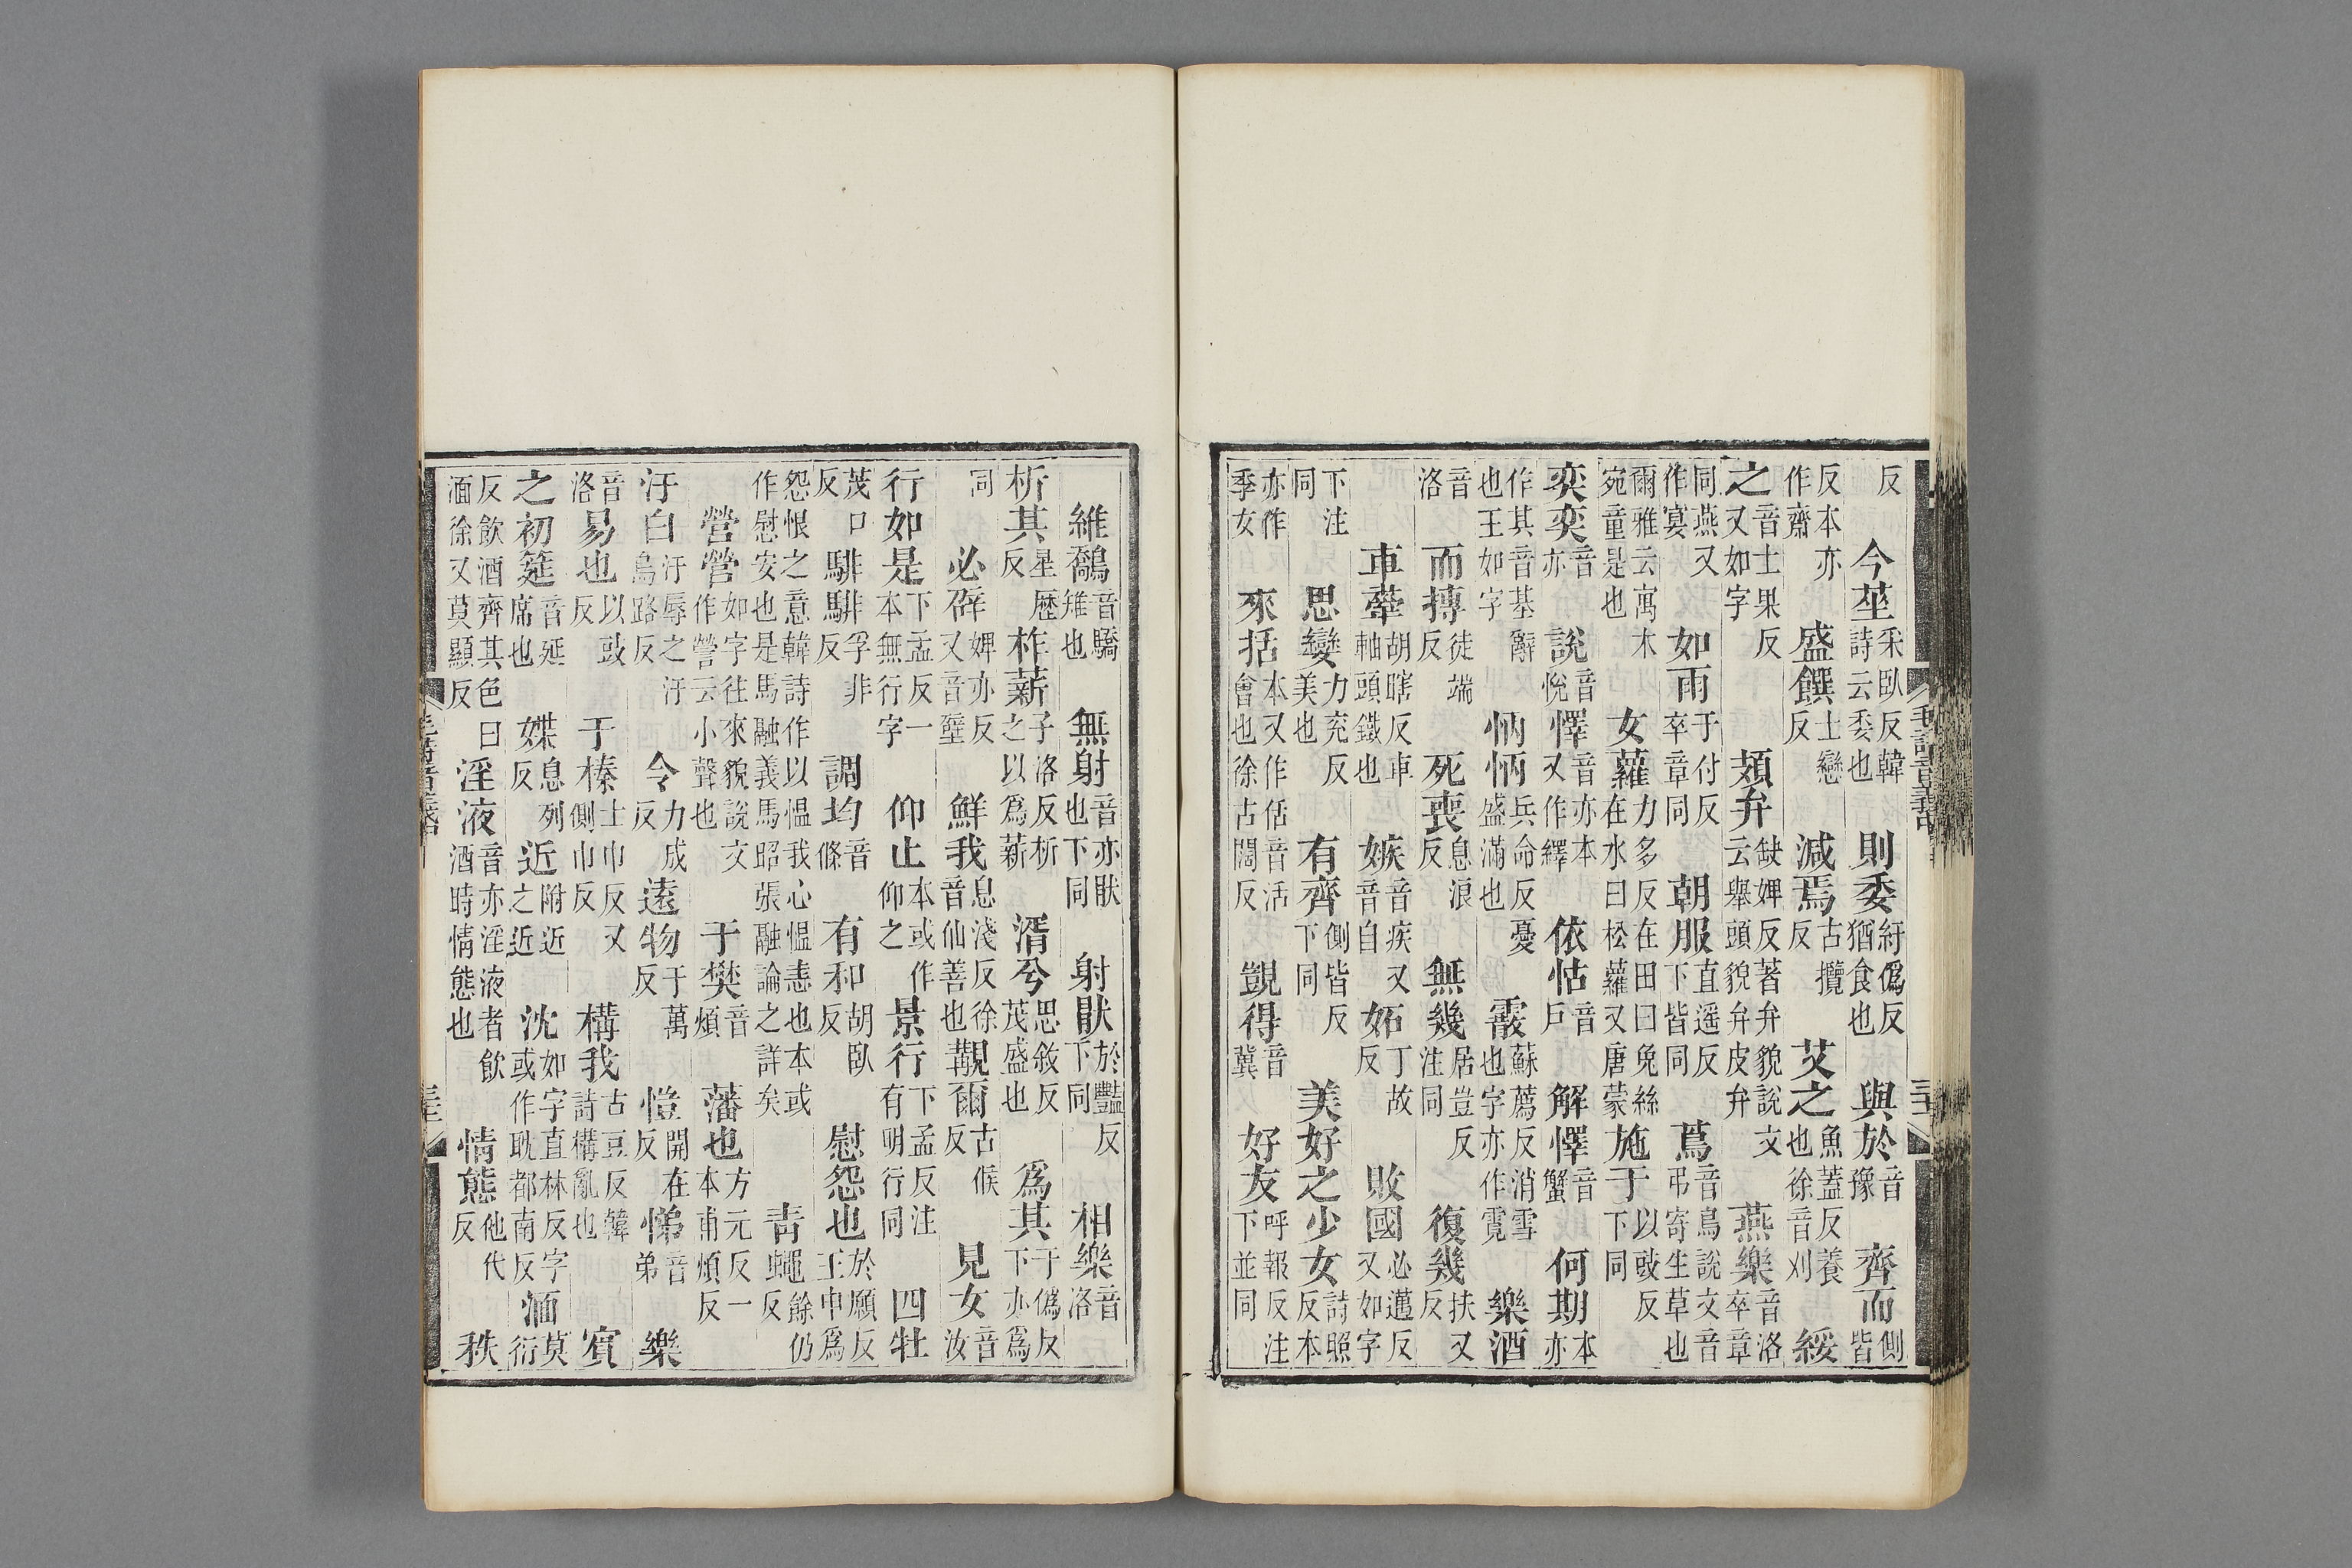 反 今莝采臥反韓詩云委也 則委紆僞反猶食也 與於音豫 齊而側皆
反本亦作齋 盛饌士戀反 減焉古攬反 艾之魚蓋反養也徐音刈 綏
之音士果反又如字 頍弁缺婢反著弁貌說文云舉頭貌弁皮弁 燕樂音洛卒章
同燕又作宴 如雨于付反卒章同 朝服直遥反下皆同 蔦音鳥說文音弔寄生草也
爾雅云寓木宛童是也 女蘿力多反在田曰兔絲在水曰松蘿又唐蒙 施于以豉反下同
奕奕音亦 說音悅 懌音亦本又作繹 依怙音戶 解懌音蟹 何期本亦
作其音基辭也王如字 怲怲兵命反憂盛滿也 霰蘇薦反消雪也字亦作霓 樂酒
音洛 而摶徒端反 死喪息浪反 無幾居豈反注同 復幾扶又反
車舝胡瞎反車軸頭鐵也 嫉音疾又音自 妬丁故反 敗國必邁反又如字
下注同 思孌力兖反美也 有齊側皆反下同 美好之少女詩照反本
亦作季女 來括本又作佸音活會也徐古闊反 覬得音冀 好友呼報反注下並同
毛詩音義中
維鷮音驕雉也 無射音亦猒也下同 射猒於豔反下同 相樂音洛
析其星歷反 柞薪子洛反析之以爲薪 湑兮思敘反茂盛也 爲其于僞反下亦爲
同 必辟婢亦反又音璧 鮮我息淺反徐音仙善也 覯爾古候反 見女音汝
行如是下孟反一本無行字 仰止本或作仰之 景行下孟反注有明行同 四牡
茂口反 騑騑孚非反 調均音條 有和胡臥反 慰怨也於願反王申爲
怨恨之意韓詩作以愠我心愠恚也本或作慰安也是馬融義馬昭張融論之詳矣 青蠅餘仍反
營營如字往來貌說文作營云小聲也 于樊音煩 藩也方元反一本甫煩反
汙白汙辱之汙烏路反 令力成反 遠物于萬反 愷開在反 悌音弟 樂
音洛 易也以豉反 于榛士巾反又側巾反 構我古豆反韓詩構亂也 賓
之初筵音延席也 媟息列反 近附近之近 沈如字直林反字或作耽都南反 湎莫衍
反飲酒齊其色曰湎徐又莫顯反 淫液音亦淫液者飲酒時情態也 情態他代反 秩